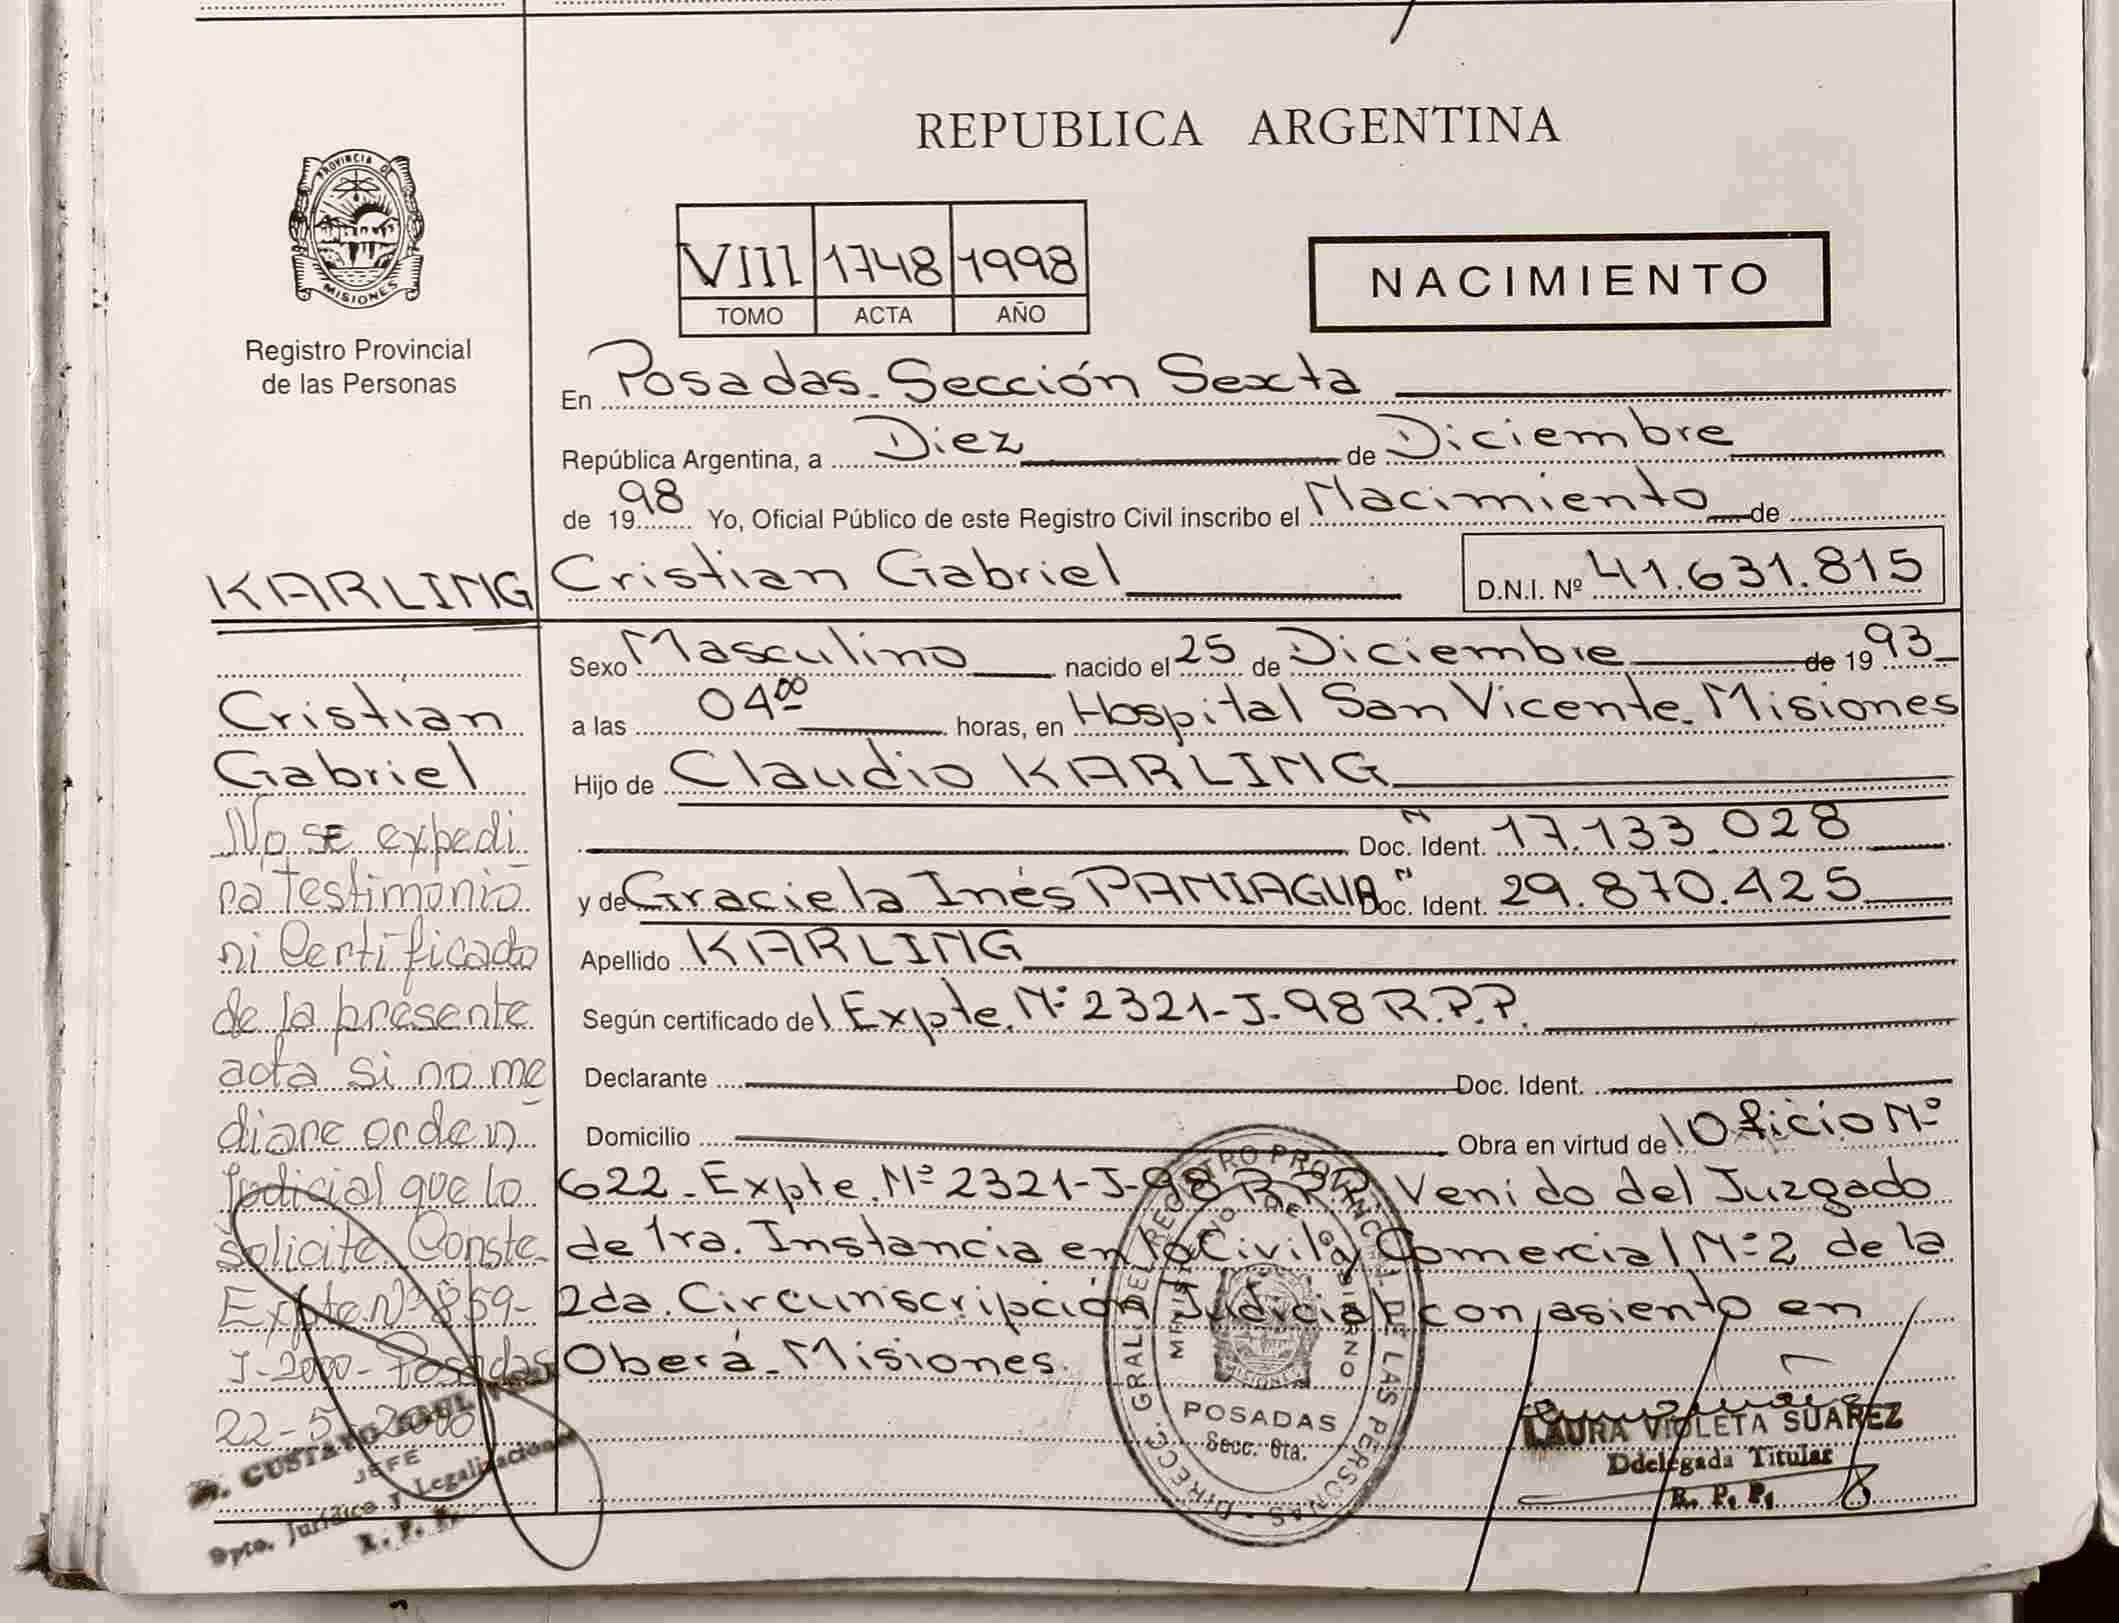 REPUBLICA ARGENTINA
PROVINCIA DE
MISIONES
Registro Provincial
de las Personas
VIII 1748 1998
TOMO ACTA AÑO
NACIMIENTO
En Posadas. Sección Sexta
República Argentina, a Diez de Diciembre
de 1998 Yo, Oficial Público de este Registro Civil inscribo el Nacimiento de
KARLING Cristian Gabriel D.N.I. Nº 41.631.815
Sexo Masculino nacido el 25 de Diciembre de 1993
a las 04⁰⁰ horas, en Hospital San Vicente. Misiones
Hijo de Claudio KARLING
Doc. Ident. Nº 17.133.028
y de Graciela Inés PANIAGUA Doc. Ident. Nº 29.870.425
Apellido KARLING
Según certificado del Expte. Nº 2321-J-98 R.P.P.
Declarante Doc. Ident.
Domicilio Obra en virtud del Oficio Nº
622. Expte. Nº 2321-J-98 R.P.P. Venido del Juzgado
de 1ra. Instancia en lo Civil y Comercial Nº 2 de la
2da. Circunscripción Judicial con asiento en
Oberá. Misiones.
Cristian
Gabriel
No se expedi
rá Testimonio
ni Certificado
de la presente
acta si no me
diare orden
Judicial que lo
solicite. Conste.
Expte Nº 859-
J-2000- Posadas
22-5-2000
GUSTAVO RAUL
JEFE
Dpto. Jurídico y Legalizaciones
R. P. P.
DIRECC. GRAL. DEL REGISTRO PROVINCIAL DE LAS PERSONAS
MINISTERIO DE GOBIERNO
MISIONES
POSADAS
Secc. 6ta.
LAURA VIOLETA SUAREZ
Ddelegada Titular
R. P. P.